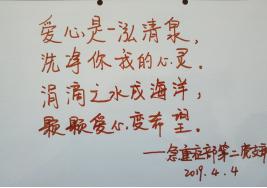 爱心是一泓清泉，
洗净你我的心灵。
涓滴之水成海洋，
颗颗爱心变希望。
——急重症部第二党支部
2019.4.4